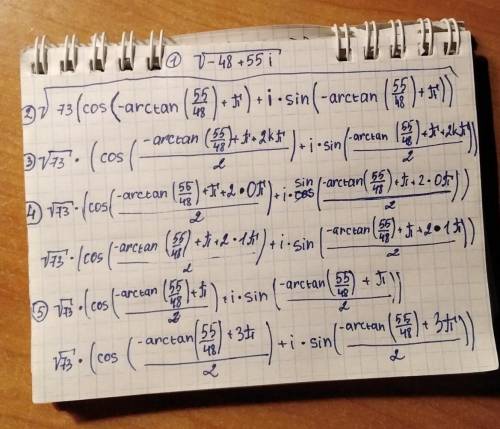 ① √-48+55i
② √73(cos(-arctan(55/48)+π)+i·sin(-arctan(55/48)+π))
③ √73·(cos((-arctan(55/48)+π+2kπ)/2)+i·sin((-arctan(55/48)+π+2kπ)/2))
④ √73·(cos((-arctan(55/48)+π+2·0π)/2)+i·sin((-arctan(55/48)+π+2·0π)/2))
√73·(cos((-arctan(55/48)+π+2·1π)/2)+i·sin((-arctan(55/48)+π+2·1π)/2))
⑤ √73·(cos((-arctan(55/48)+π)/2)+i·sin((-arctan(55/48)+π)/2))
√73·(cos((-arctan(55/48)+3π)/2)+i·sin((-arctan(55/48)+3π)/2))